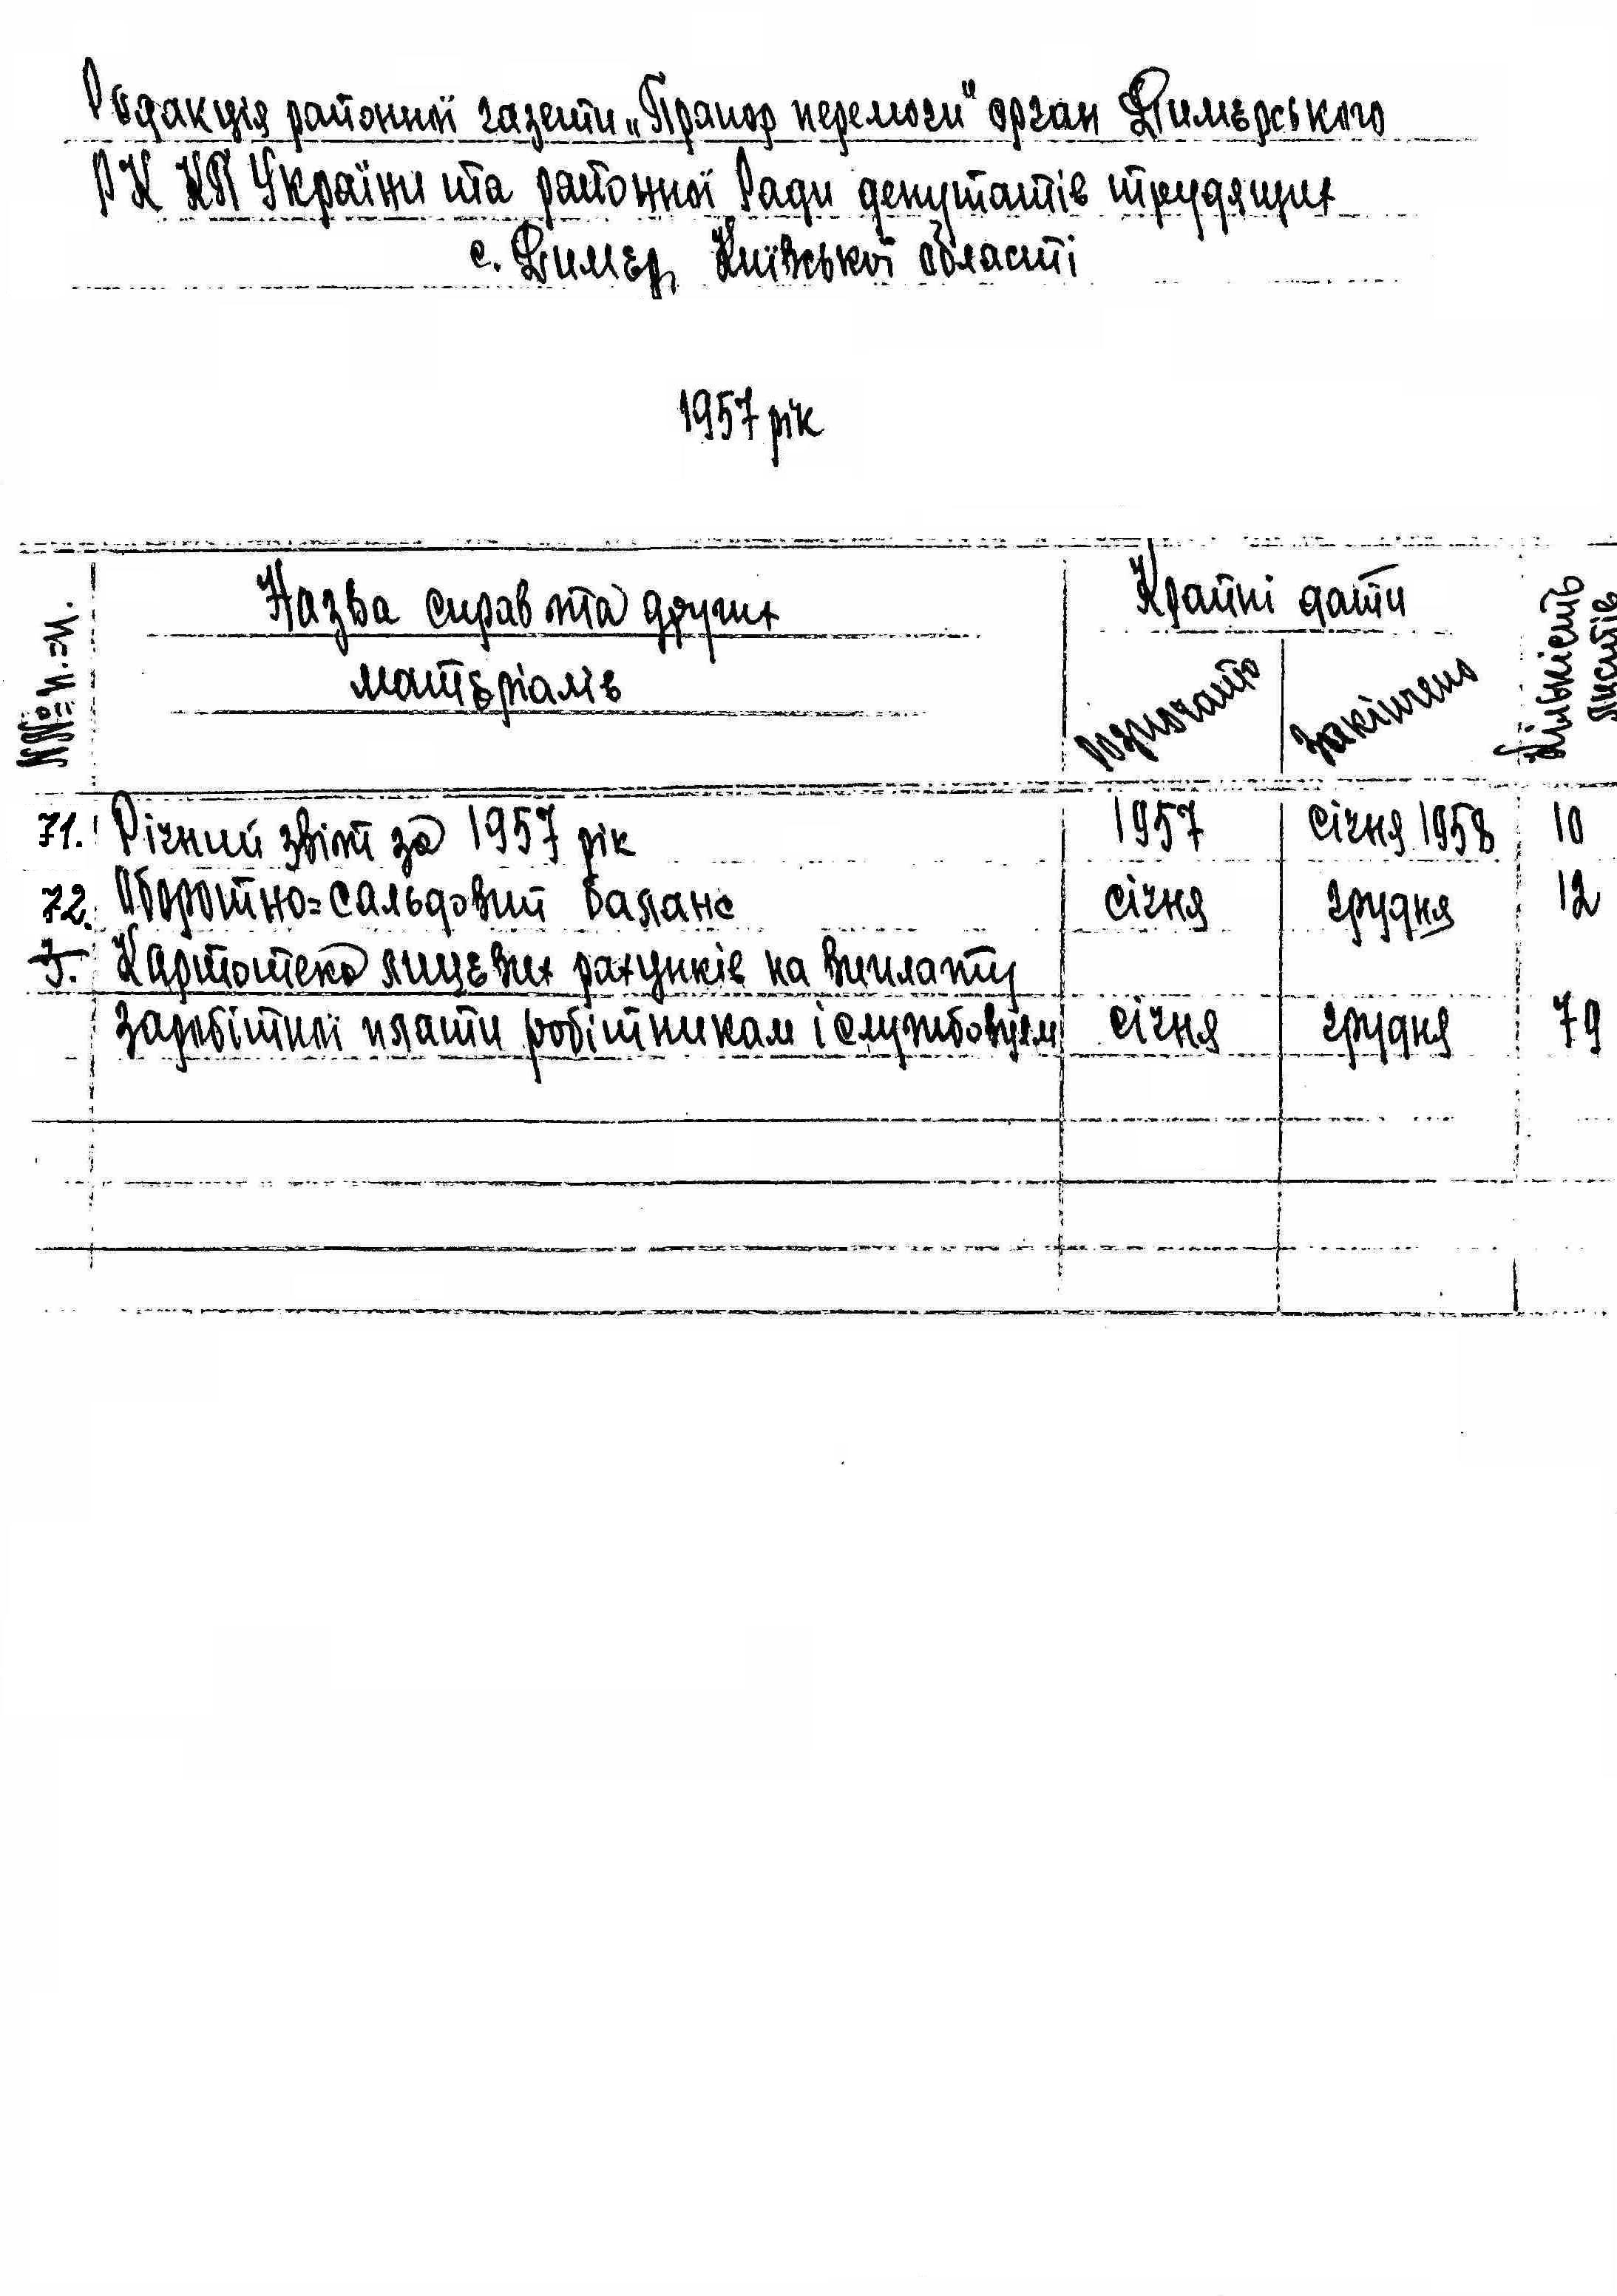 Редакція районної газети „Прапор перемоги" орган Димерського
РК КП України та районної Ради депутатів трудящих
с. Димер, Київської області
1957 рік
№№ п.-м.
Назва справ та других
матеріалів
Крайні дати
розпочато
закінчено
Кількість
листів
71. Річний звіт за 1957 рік 1957 січня 1958 10
72. Оборотно=сальдовий баланс січня грудня 12
3. Картотека лицевих рахунків на виплату
заробітної плати робітникам і службовцям січня грудня 79